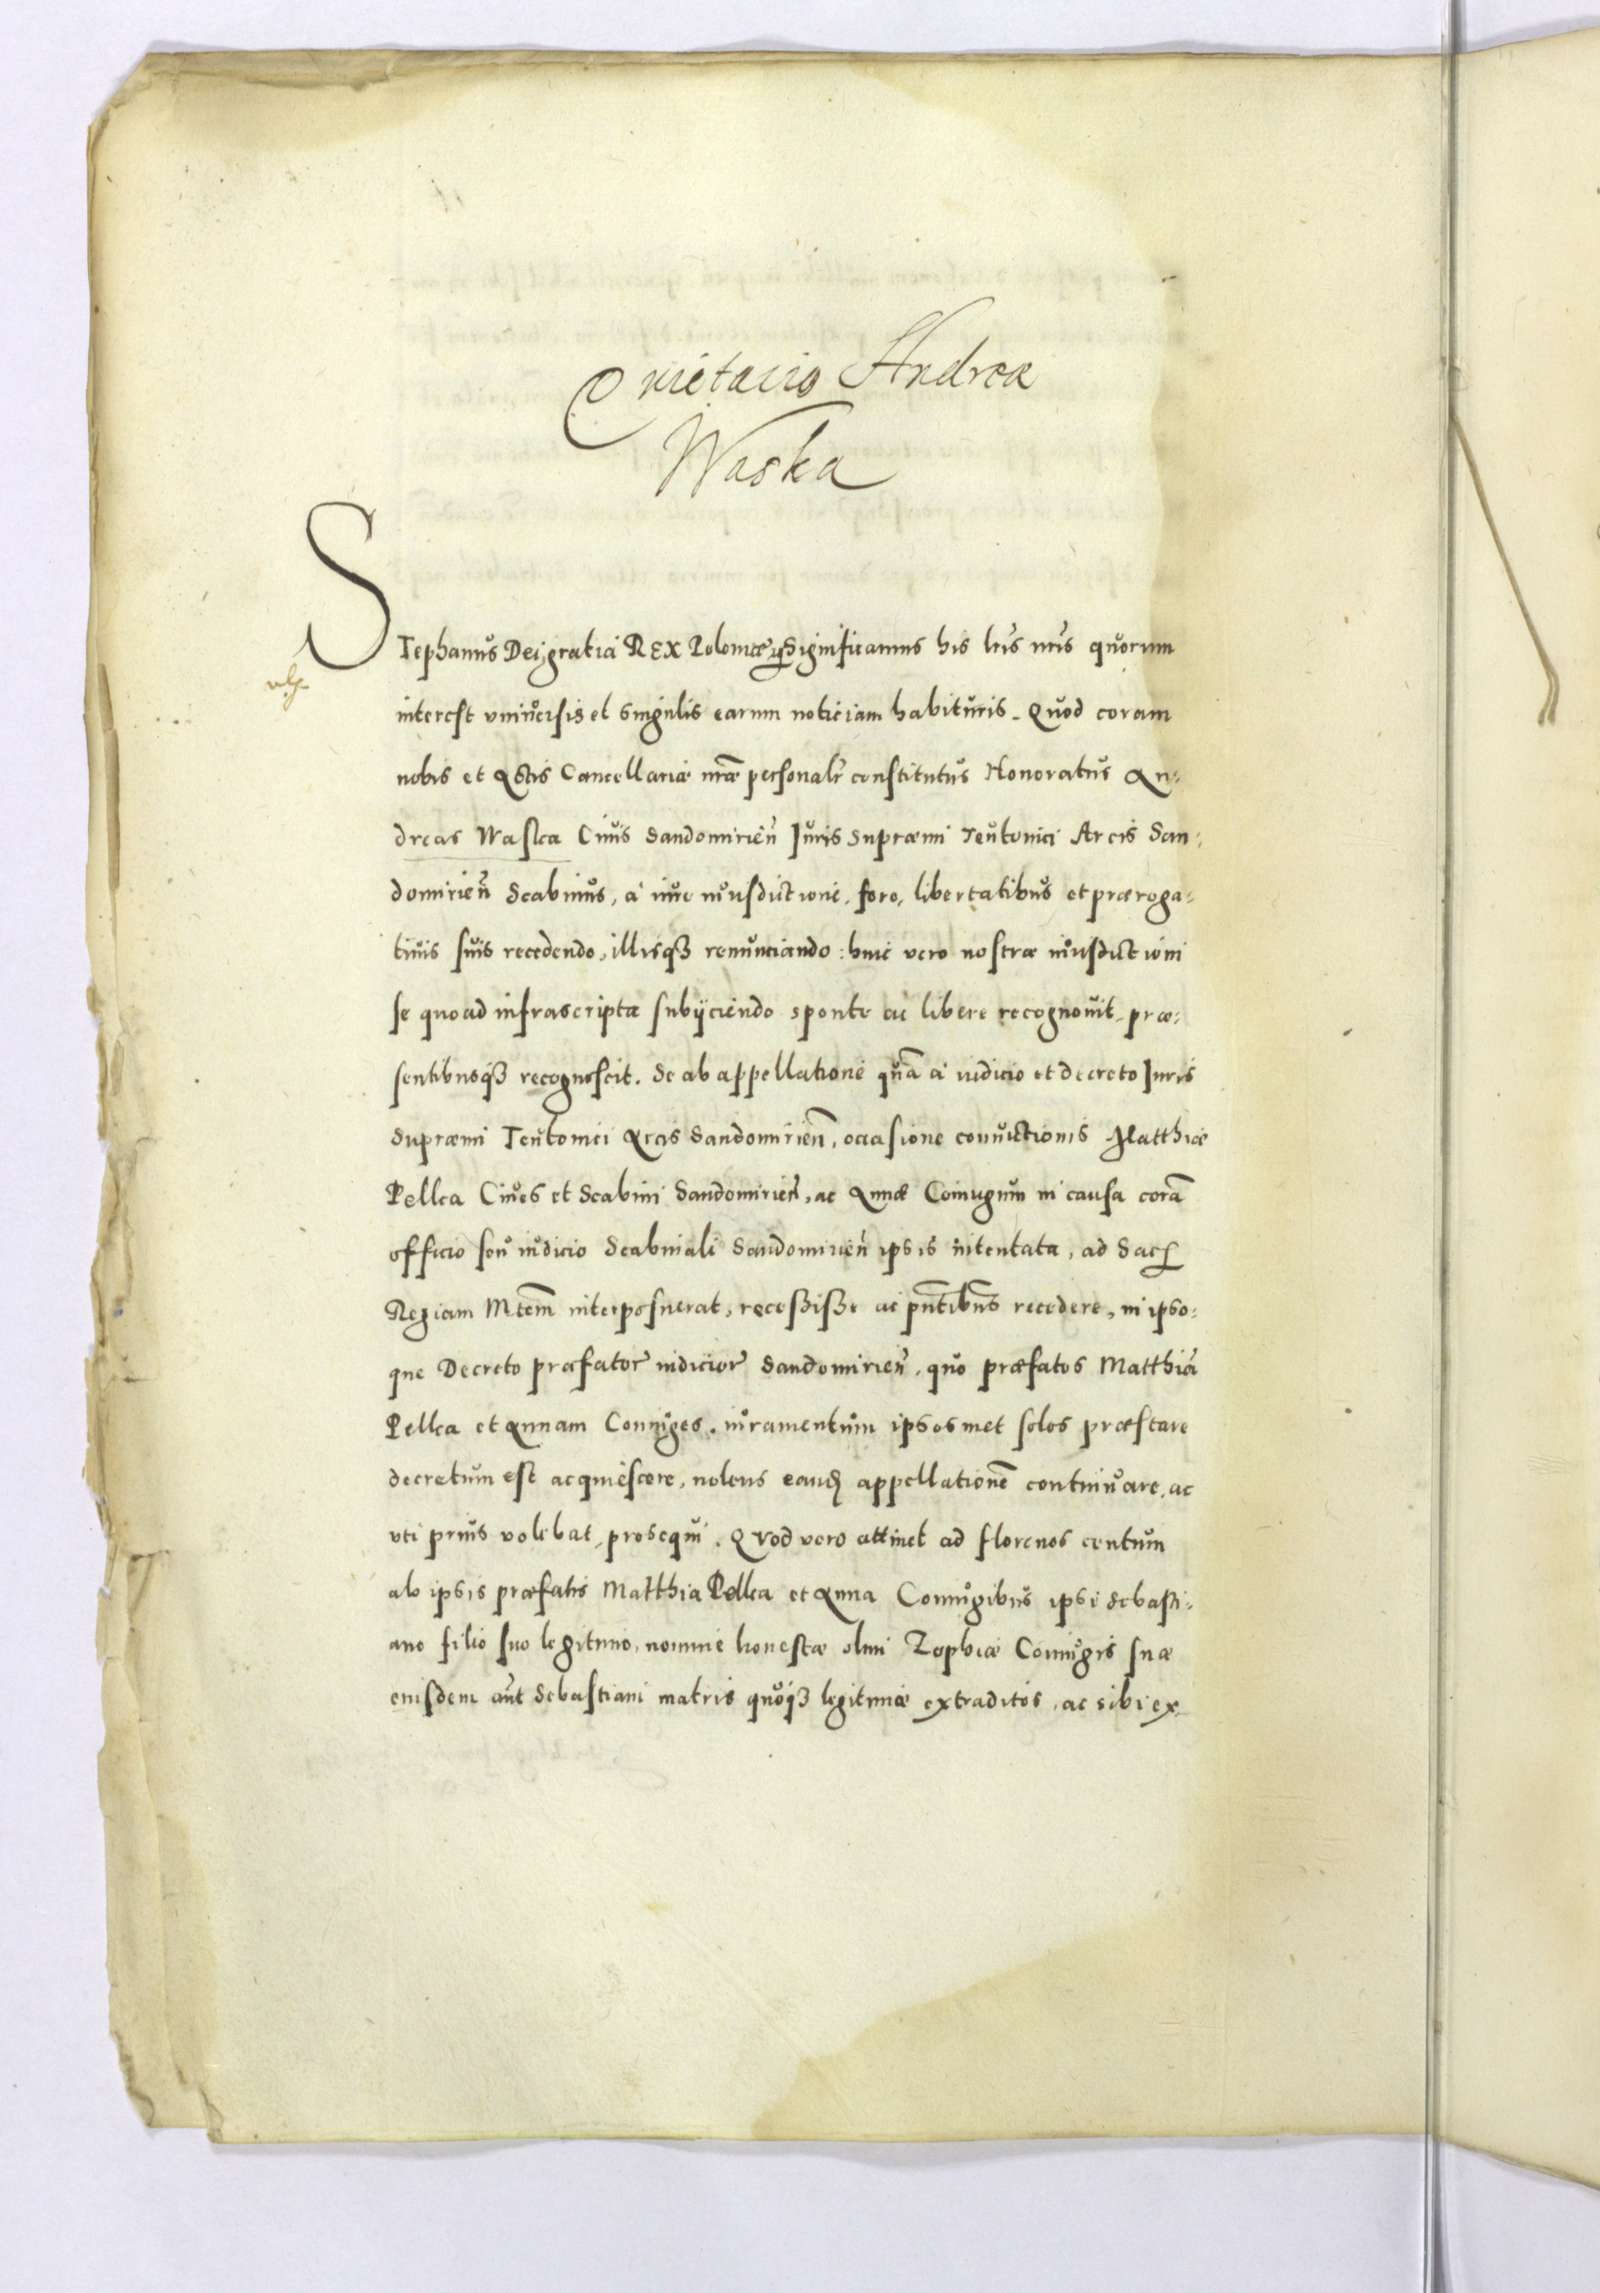 Quietacio Andreæ
Waska
Stephanus Dei gratia REX Poloniæ Significamus his lr̃is nr̃is quorum
interest vniuersis et singulis earum noticiam habituris. Quod coram
nobis et Actis Cancellariæ nr̃æ personalr̃ constitutus Honoratus An:
dreas Waska Ciuis Sandomirien̄ Iuris Supræmi Teutonici Arcis San:
domirien̄ Scabinus, à iure iurisdictione, foro, libertatibus et præroga:
tiuis suis recedendo, illisqȝ renunciando: huic vero nostræ iurisdictioni
se quoad infrascripta subÿciendo sponte ac libere recognouit, præ:
sentibusqȝ recognoscit. Se ab appellatione quā à iudicio et decreto Iuris
Supræmi Teutonici Arcis Sandomirien̄, occasione conuictionis Matthiæ
Pelka Ciues et Scabini Sandomirien̄, ac Annæ Coniugum in causa corā
officio seu iudicio Scabinali Sandomirien̄ ipsis intentata, ad Sac̃
Regiam Mtem̃ interposuerat, recessisse ac pn̄tibus recedere, in ipso:
que Decreto præfator̃ iudicior̃ Sandomirien̄, quo præfatos Matthiā
Pelka et Annam Coniuges, iuramentum ipsosmet solos præstare
decretum est acquiescere, nolens eand̃ appellationē continuare, ac
vti prius volebat, prosequi. Quod vero attinet ad florenos centum
ab ipsis præfatis Matthia Pelka et Anna Coniugibus ipsi Sebasti:
ano filio suo legitimo, nomine honestæ olim Zophiæ Coniugis suæ
eiusdem aūt Sebastiani matris quoqȝ legitimæ extraditos, ac sibi ex